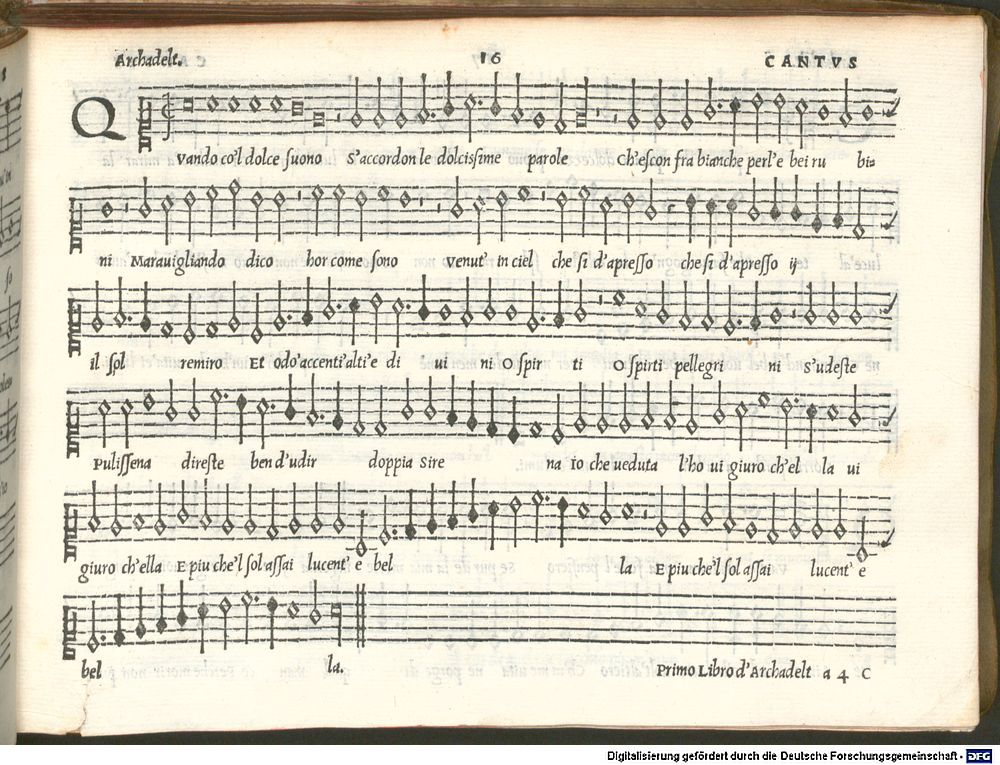 Archadelt. 16 CANTVS
Quando co'l dolce suono S'accordon le dolcissime parole Ch'escon fra bianche perl'e bei ru bi
ni Marauigliando dico hor come sono venut' in ciel che si d'apresso che si d'apresso ij
il sol remiro Et odo'accenti'alti'e di ui ni O spir ti O spirti pellegri ni s'udeste
Pulissena direste ben d'udir doppia Sire na Io che ueduta l'ho ui giuro ch'el la ui
giuro ch'ella E piu che'l sol assai lucent' e bel la E piu che'l sol assai lucent' e
bel la.
Primo Libro d'Archadelt a 4 C
Digitalisierung gefördert durch die Deutsche Forschungsgemeinschaft - DFG